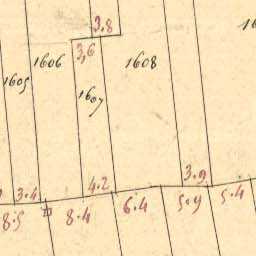 3.8
3,6
1606
1608
1605
1607
4.2
3.9
3.4
5.4
6.4
5.9
8.5
8.4